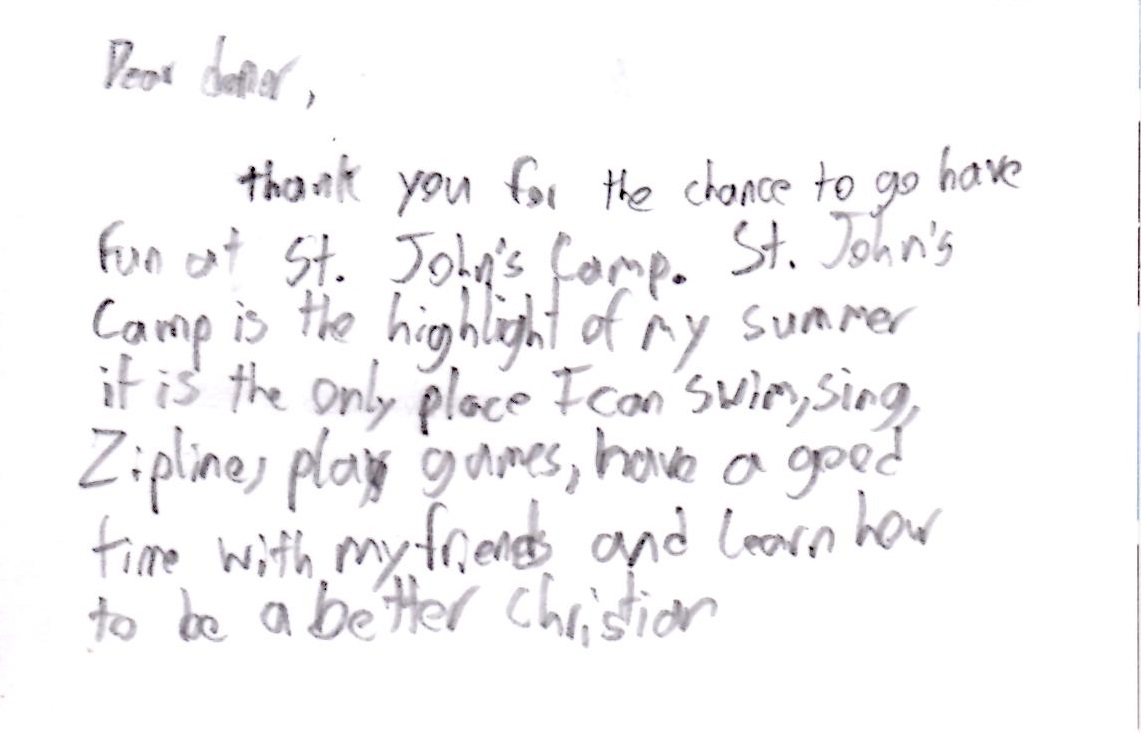 Dear donor,
thank you for the chance to go have
fun at St. John's Camp. St. John's
Camp is the highlight of my summer
it is the only place I can swim, sing,
Zipline, play games, have a good
time with my friends and learn how
to be a better Christian